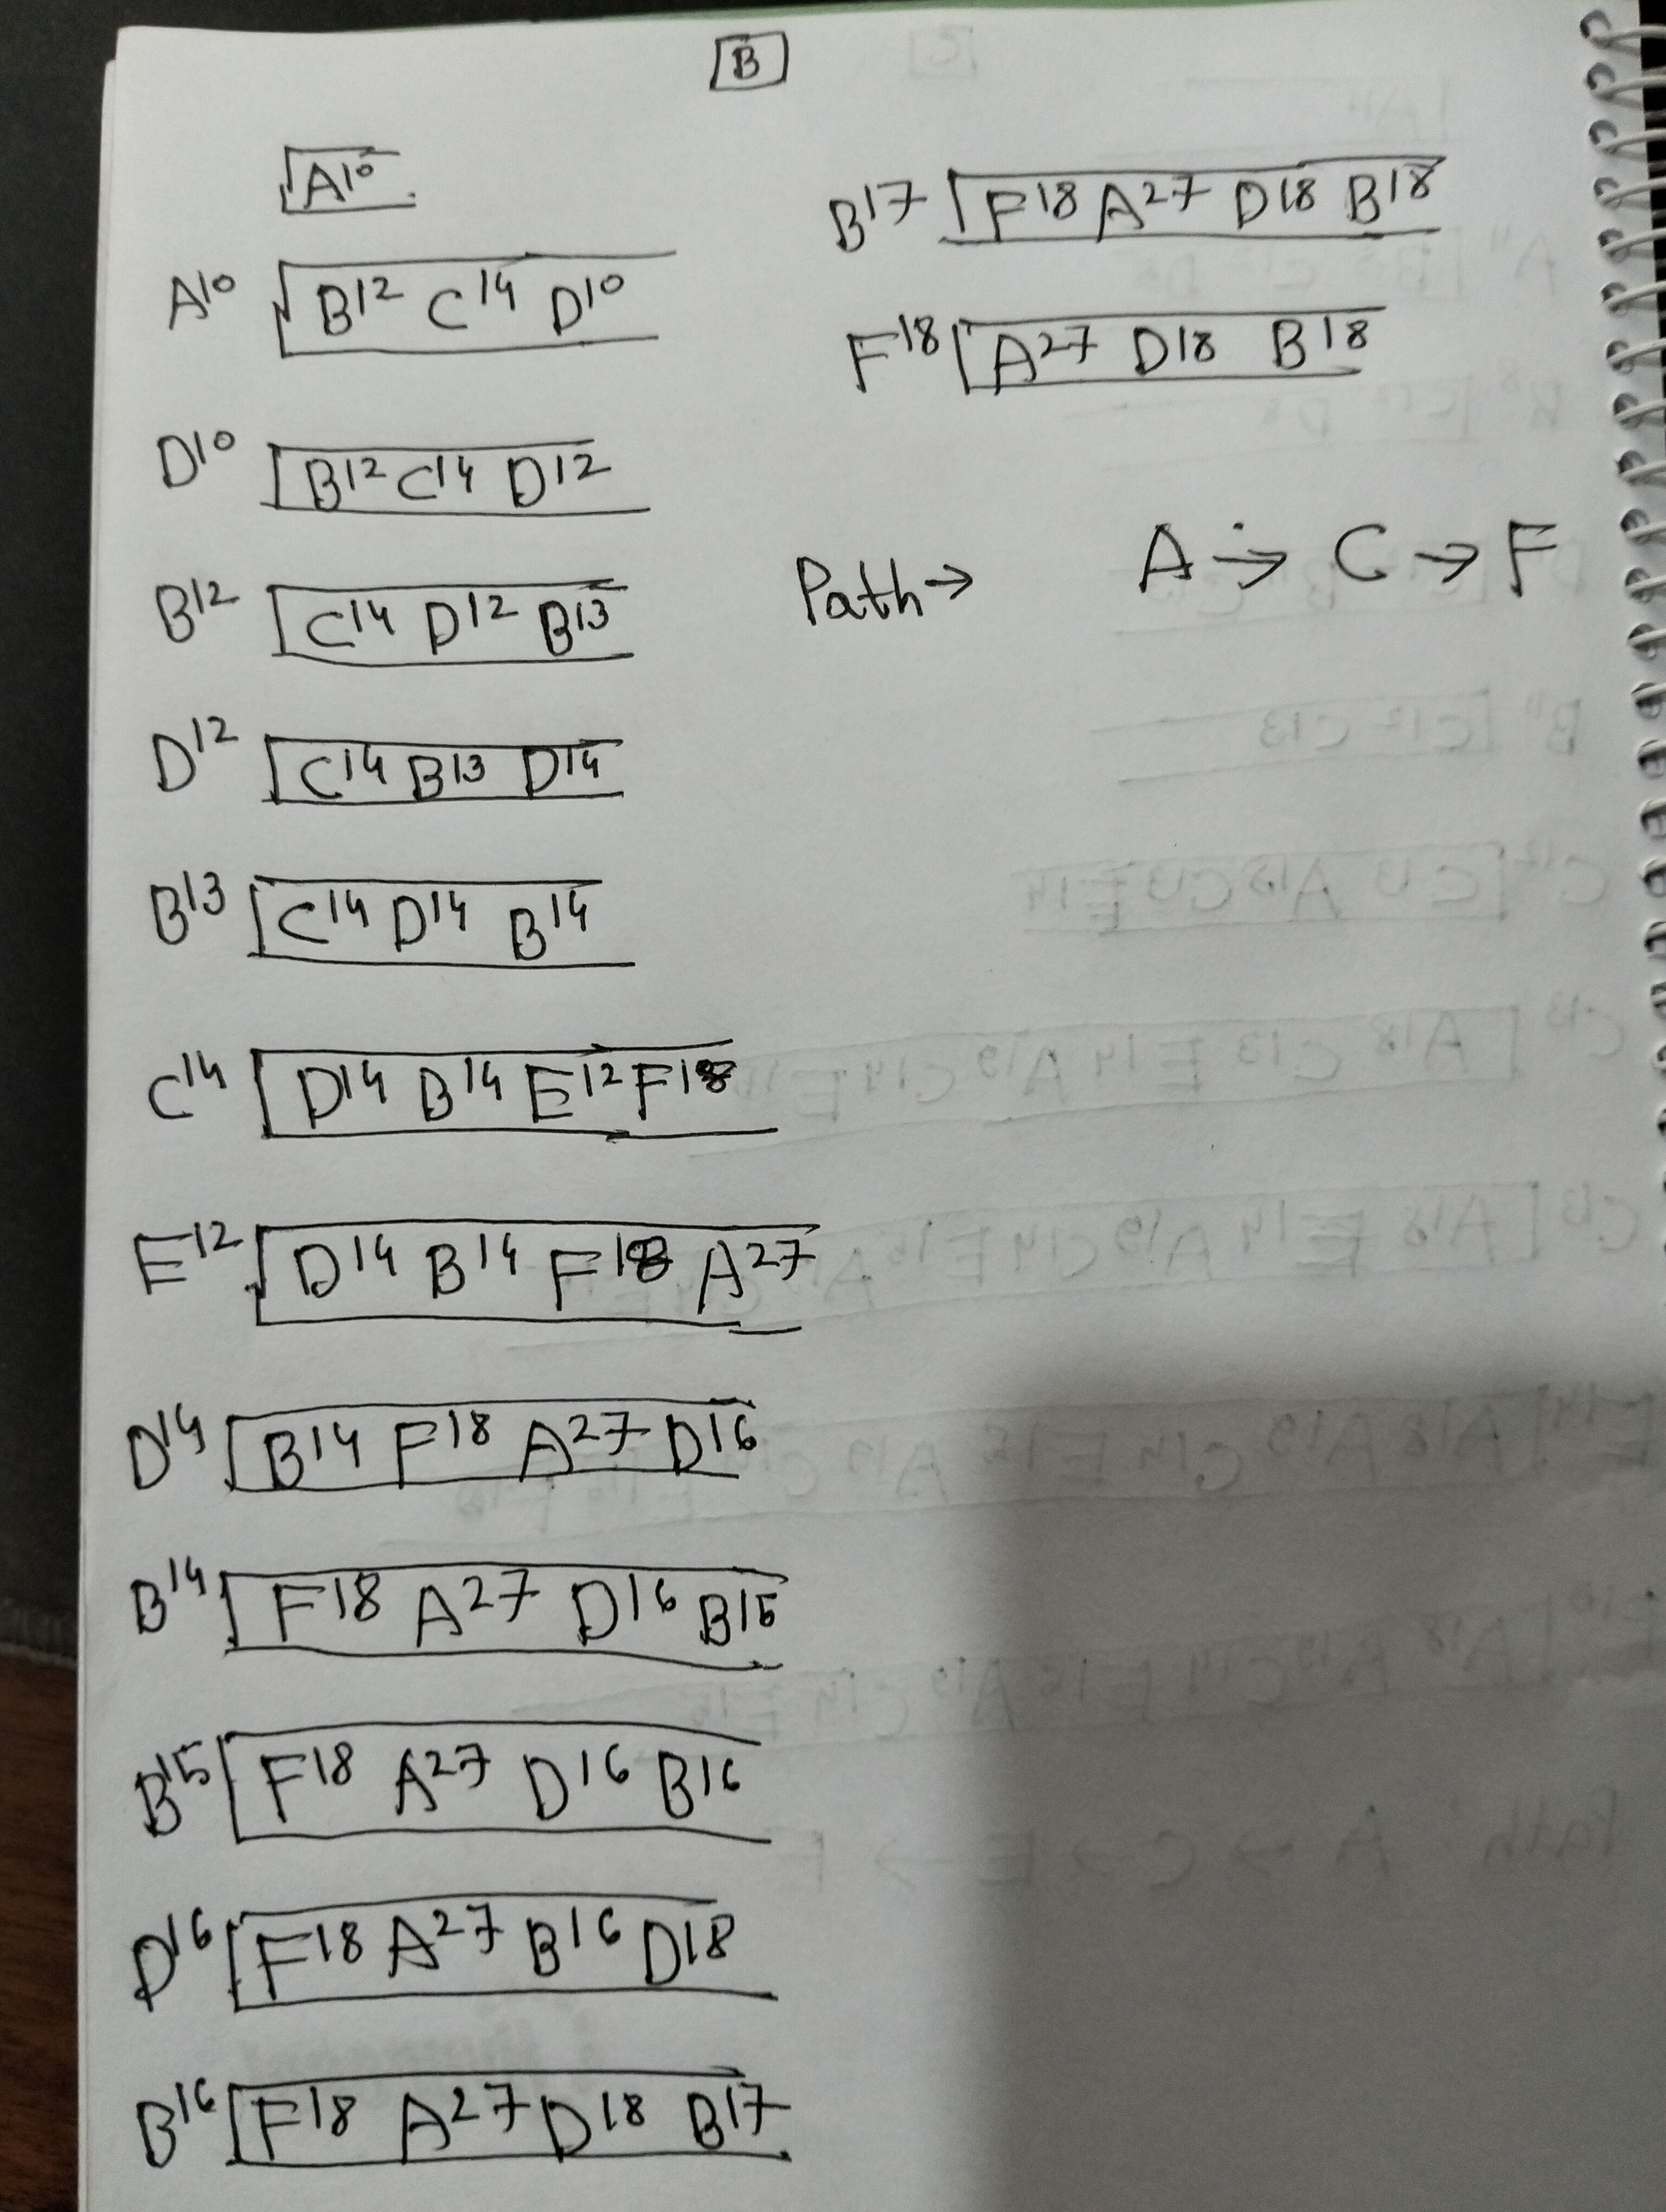 B
A10
A10 B12 C14 D10
D10 B12 C14 D12
B12 C14 D12 B13
D12 C14 B13 D14
B13 C14 D14 B14
C14 D14 B14 E12 F18
E12 D14 B14 F18 A27
D14 B14 F18 A27 D16
B14 F18 A27 D16 B15
B15 F18 A27 D16 B16
D16 F18 A27 B16 D18
B16 F18 A27 D18 B17
B17 F18 A27 D18 B18
F18 A27 D18 B18
Path → A → C → F